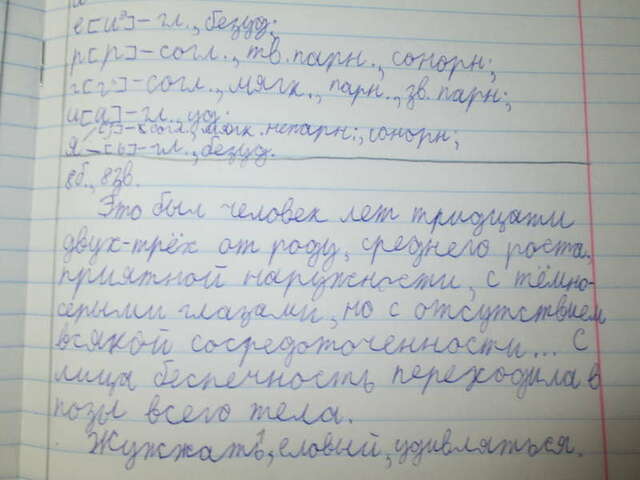 е[иэ]-гл., безуд;
р[р]-согл., тв. парн., сонорн;
г[г']-согл., мягк., парн., зв. парн;
и[и]-гл., уд;
я [й']-согл., мягк. непарн., сонорн;
[ь]-гл., безуд.
8б., 8зв.
Это был человек лет тридцати
двух-трёх от роду, среднего роста,
приятной наружности, с тёмно-
серыми глазами, но с отсутствием
всякой сосредоточенности... С
лица беспечность переходила в
позы всего тела.
Жужжать, еловый, удивляться.